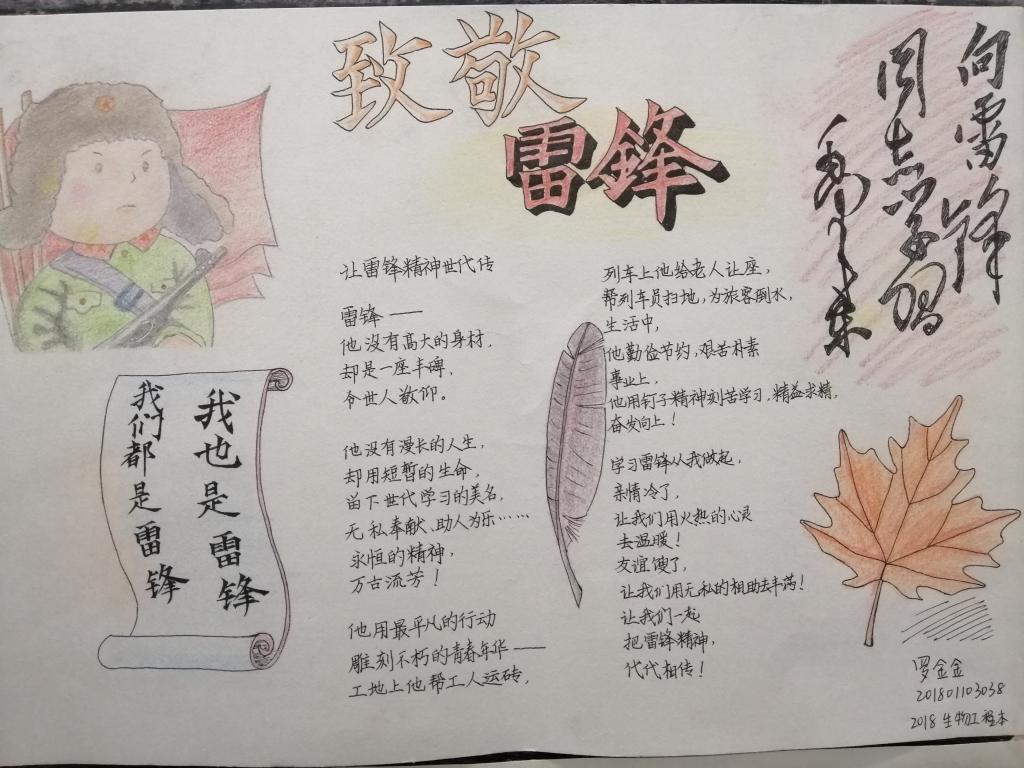 致敬
雷鋒
向雷锋
同志学习
毛泽东
让雷锋精神世代传
雷锋——
他没有高大的身材，
却是一座丰碑，
令世人敬仰。
他没有漫长的人生，
却用短暂的生命，
留下世代学习的美名，
无私奉献、助人为乐……
永恒的精神，
万古流芳！
他用最平凡的行动
雕刻不朽的青春年华——
工地上他帮工人运砖，
列车上他给老人让座，
帮列车员扫地，为旅客倒水，
生活中，
他勤俭节约，艰苦朴素
事业上，
他用钉子精神刻苦学习，精益求精，
奋发向上！
学习雷锋从我做起，
亲情冷了，
让我们用火热的心灵
去温暖！
友谊馊了，
让我们用无私的相助去丰满！
让我们一起
把雷锋精神，
代代相传！
我也是雷锋
我们都是雷锋
罗金金
201801103038
2018生物工程本